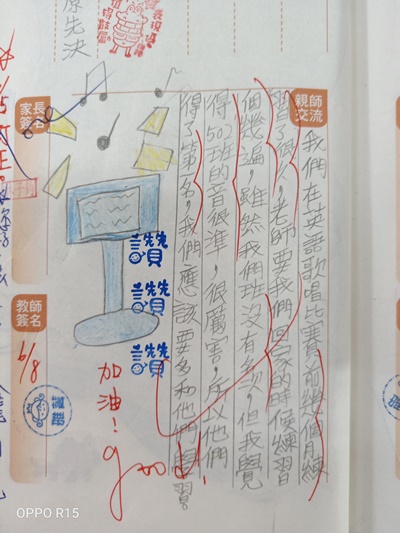 親師交流
我們在英語歌唱比賽前幾個月練
習了很久,老師要我們回家的時候練習
個幾遍,雖然我們班沒有名次,但我覺
得502班的音很準,很厲害,所以他們
得了第一名,我們應該要多和他們學習
讚
讚
讚
加油!
good!
家長簽名
教師簽名
6/8
原先決
OPPO R15